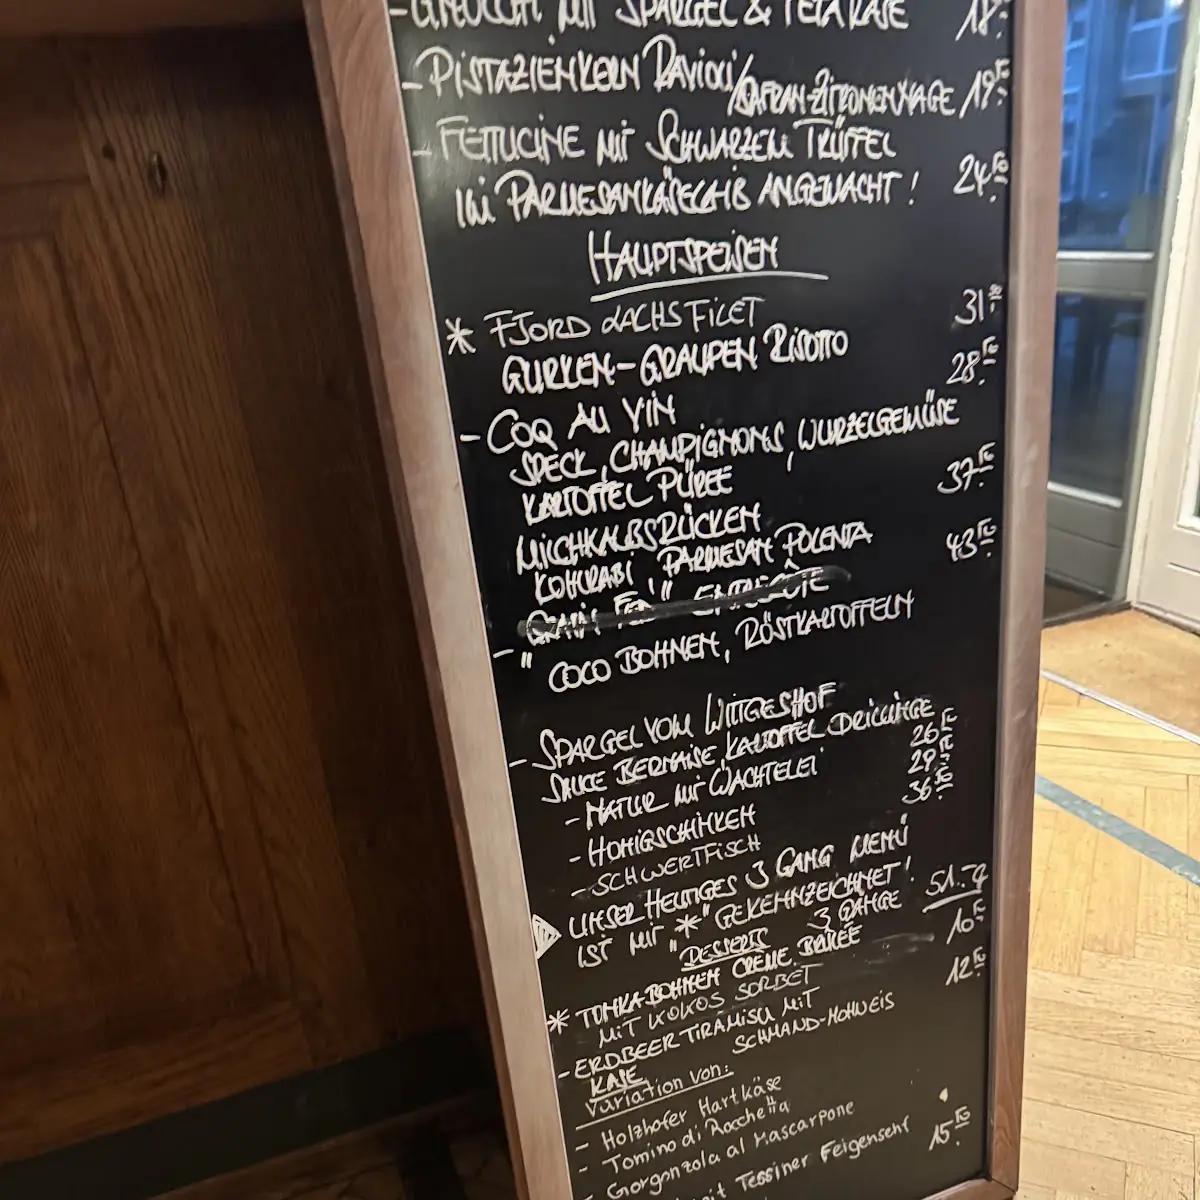 -GNOCCHI MIT SPARGEL & FETAKÄSE 18.-
-PISTAZIENKERN RAVIOLI/SAFRAN-ZITRONENNAGE 19.50
-FETTUCINE MIT SCHWARZEN TRÜFFEL
IM PARMESANKÄSELAIB ANGEMACHT! 24.50
HAUPTSPEISEN
* FJORD LACHSFILET 31.50
GURKEN-GRAUPEN RISOTTO
- COQ AU VIN 28.50
SPECK, CHAMPIGNONS, WURZELGEMÜSE
KARTOFFEL PÜREE
MILCHKALBSRÜCKEN 37.50
KOHLRABI, PARMESAN POLENTA
- "GRAIN FED" ENTRECÔTE 43.50
COCO BOHNEN, RÖSTKARTOFFELN
- SPARGEL VOM WITTGESHOF
SAUCE BERNAISE, KARTOFFEL DRILLINGE
- NATUR MIT WACHTELEI 26.50
- HONIGSCHINKEN 29.50
- SCHWERTFISCH 36.50
UNSER HEUTIGES 3 GANG MENÜ
IST MIT "*" GEKENNZEICHNET!
3 GÄNGE 51.50
DESSERTS
* TONKABOHNEN CRÈME BRÛLÉE 10.50
MIT KOKOS SORBET
- ERDBEER TIRAMISU MIT 12.50
SCHMAND-MOHNEIS
KÄSE
Variation von:
- Holzhofer Hartkäse
- Tomino di Rocchetta
- Gorgonzola al Mascarpone
mit Tessiner Feigensenf 15.50